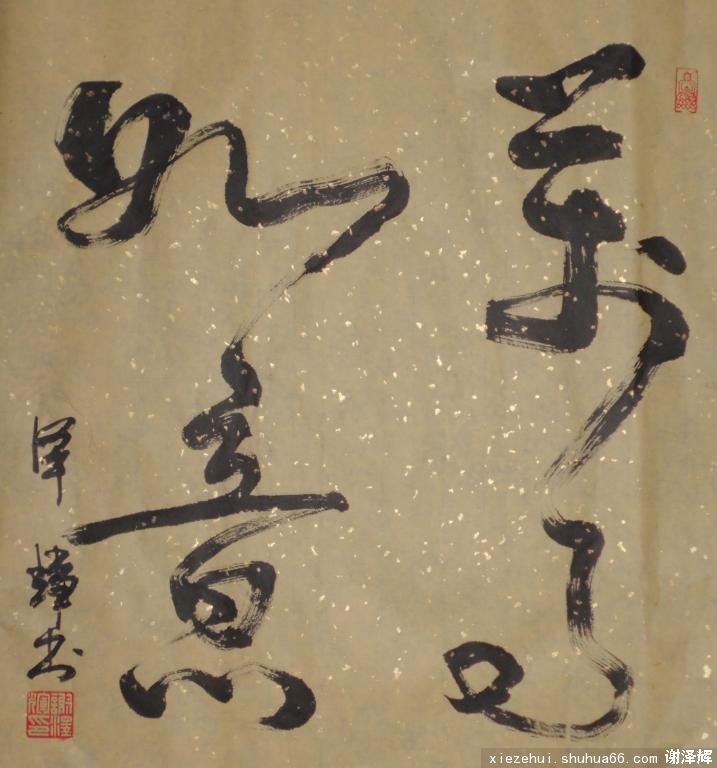 萬事
如意
泽辉书
謝澤輝印
xiezehui.shuhua66.com 谢泽辉